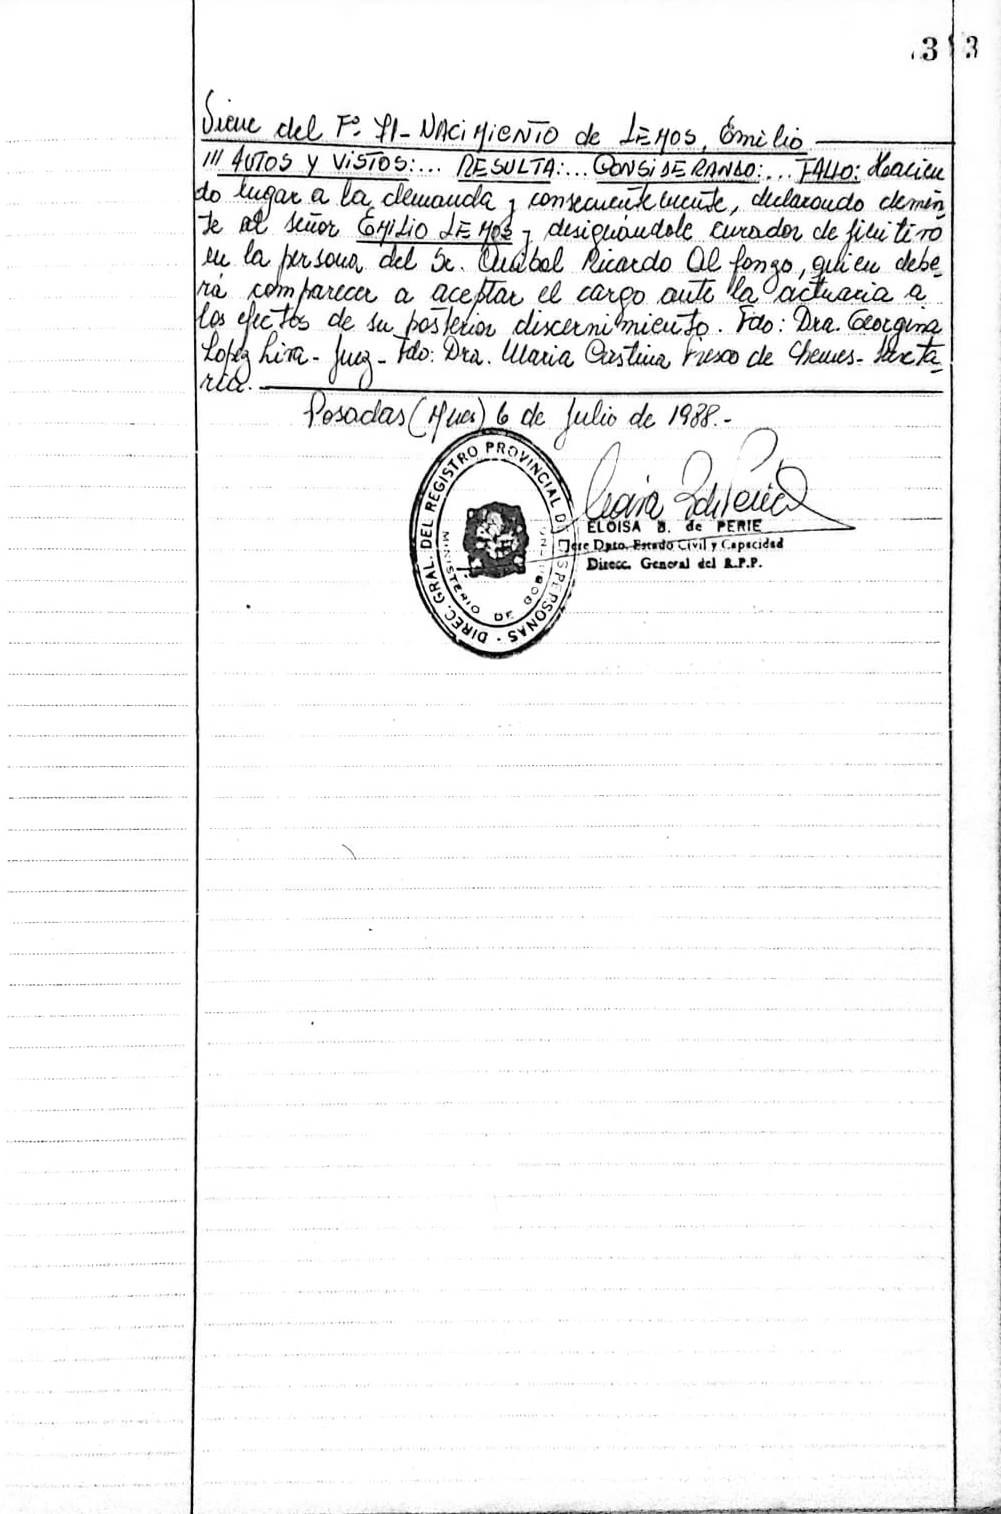 3 3
Viene del Fº 71- NACiMiENTO de LEMOS, Emilio
/// AUTOS y VISTOS:... RESULTA:... CONSIDERANDO:... FALLO: Hacien
do lugar a la demanda y consecuentemente, declarando demen
te al señor EMILIO LEMOS y designándole curador definitivo
en la persona del Sr. Anibal Ricardo Alfonzo, quien debe-
rá comparecer a aceptar el cargo ante la actuaria a
los efectos de su posterior discernimiento. Fdo: Dra. Georgina
Lopez Lira - Juez - Fdo: Dra. Maria Cristina de Chemes - Secreta-
ria.
Posadas (Mnes) 6 de Julio de 1988.-
DIREC. GRAL. DEL REGISTRO PROVINCIAL DE LAS PERSONAS -
MINISTERIO DE GOBIERNO
ELOISA B. de PERIE
Jefe Dpto. Estado Civil y Capacidad
Direcc. General del R.P.P.